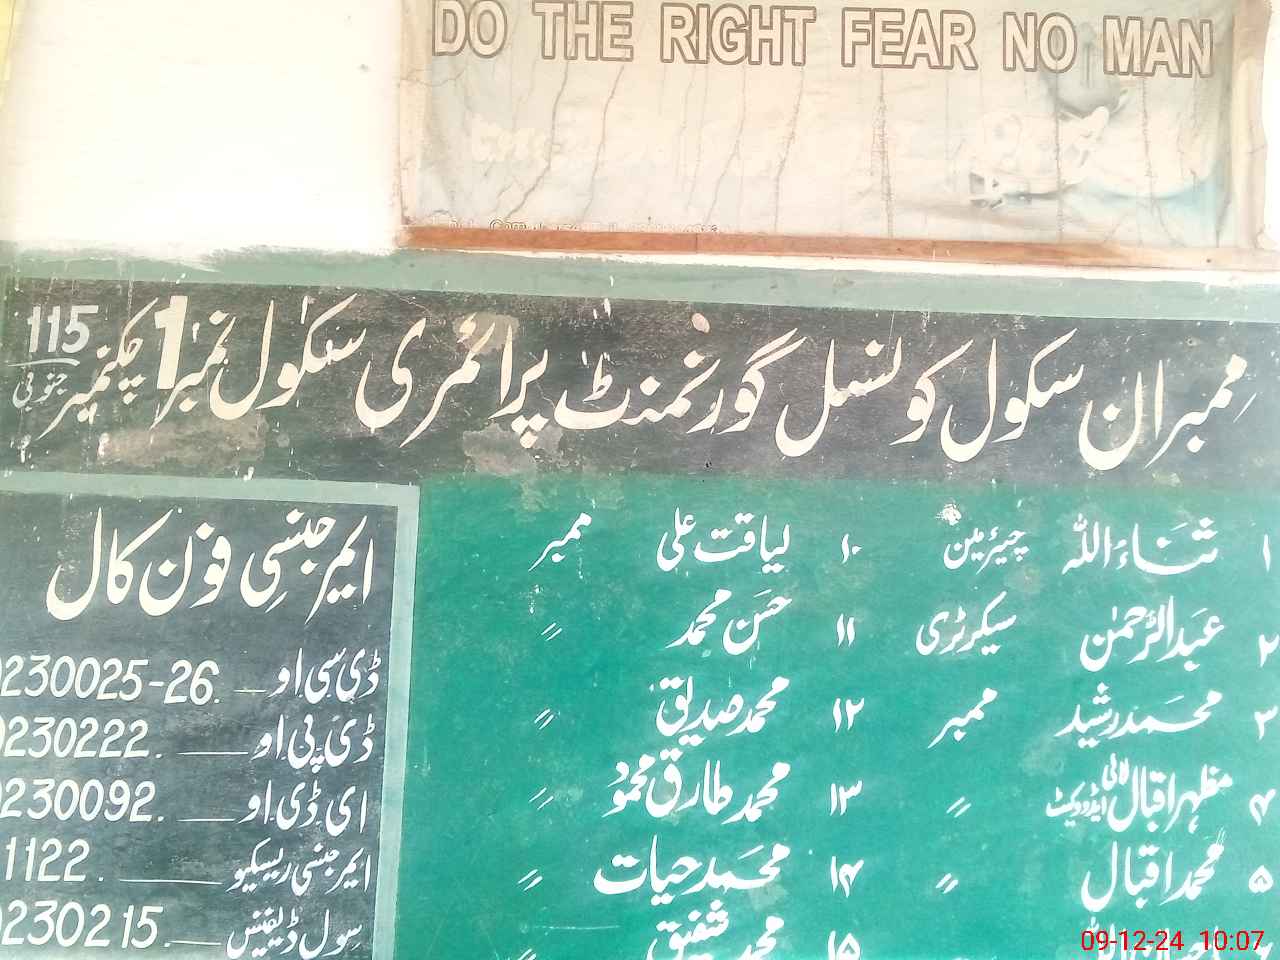 DO THE RIGHT FEAR NO MAN
ممبران سکول کونسل گورنمنٹ پرائمری سکول نمبر 1 چکنمبر 115 جنوبی
۱ ثناء اللہ چیئرمین
۲ عبدالرحمٰن سیکرٹری
۳ محمد رشید ممبر
۴ مظہر اقبال ایڈووکیٹ ״
۵ محمد اقبال ״
۱۰ لیاقت علی ممبر
۱۱ حسن محمد ״
۱۲ محمد صدیق ״
۱۳ محمد طارق محمود ״
۱۴ محمد حیات ״
۱۵ محمد شفیق ״
ایمرجنسی فون کال
ڈی سی او 230025-26.
ڈی پی او 230222.
ای ڈی او 230092.
ایمرجنسی ریسکیو 1122.
سول ڈیفینس 230215.
09-12-24 10:07